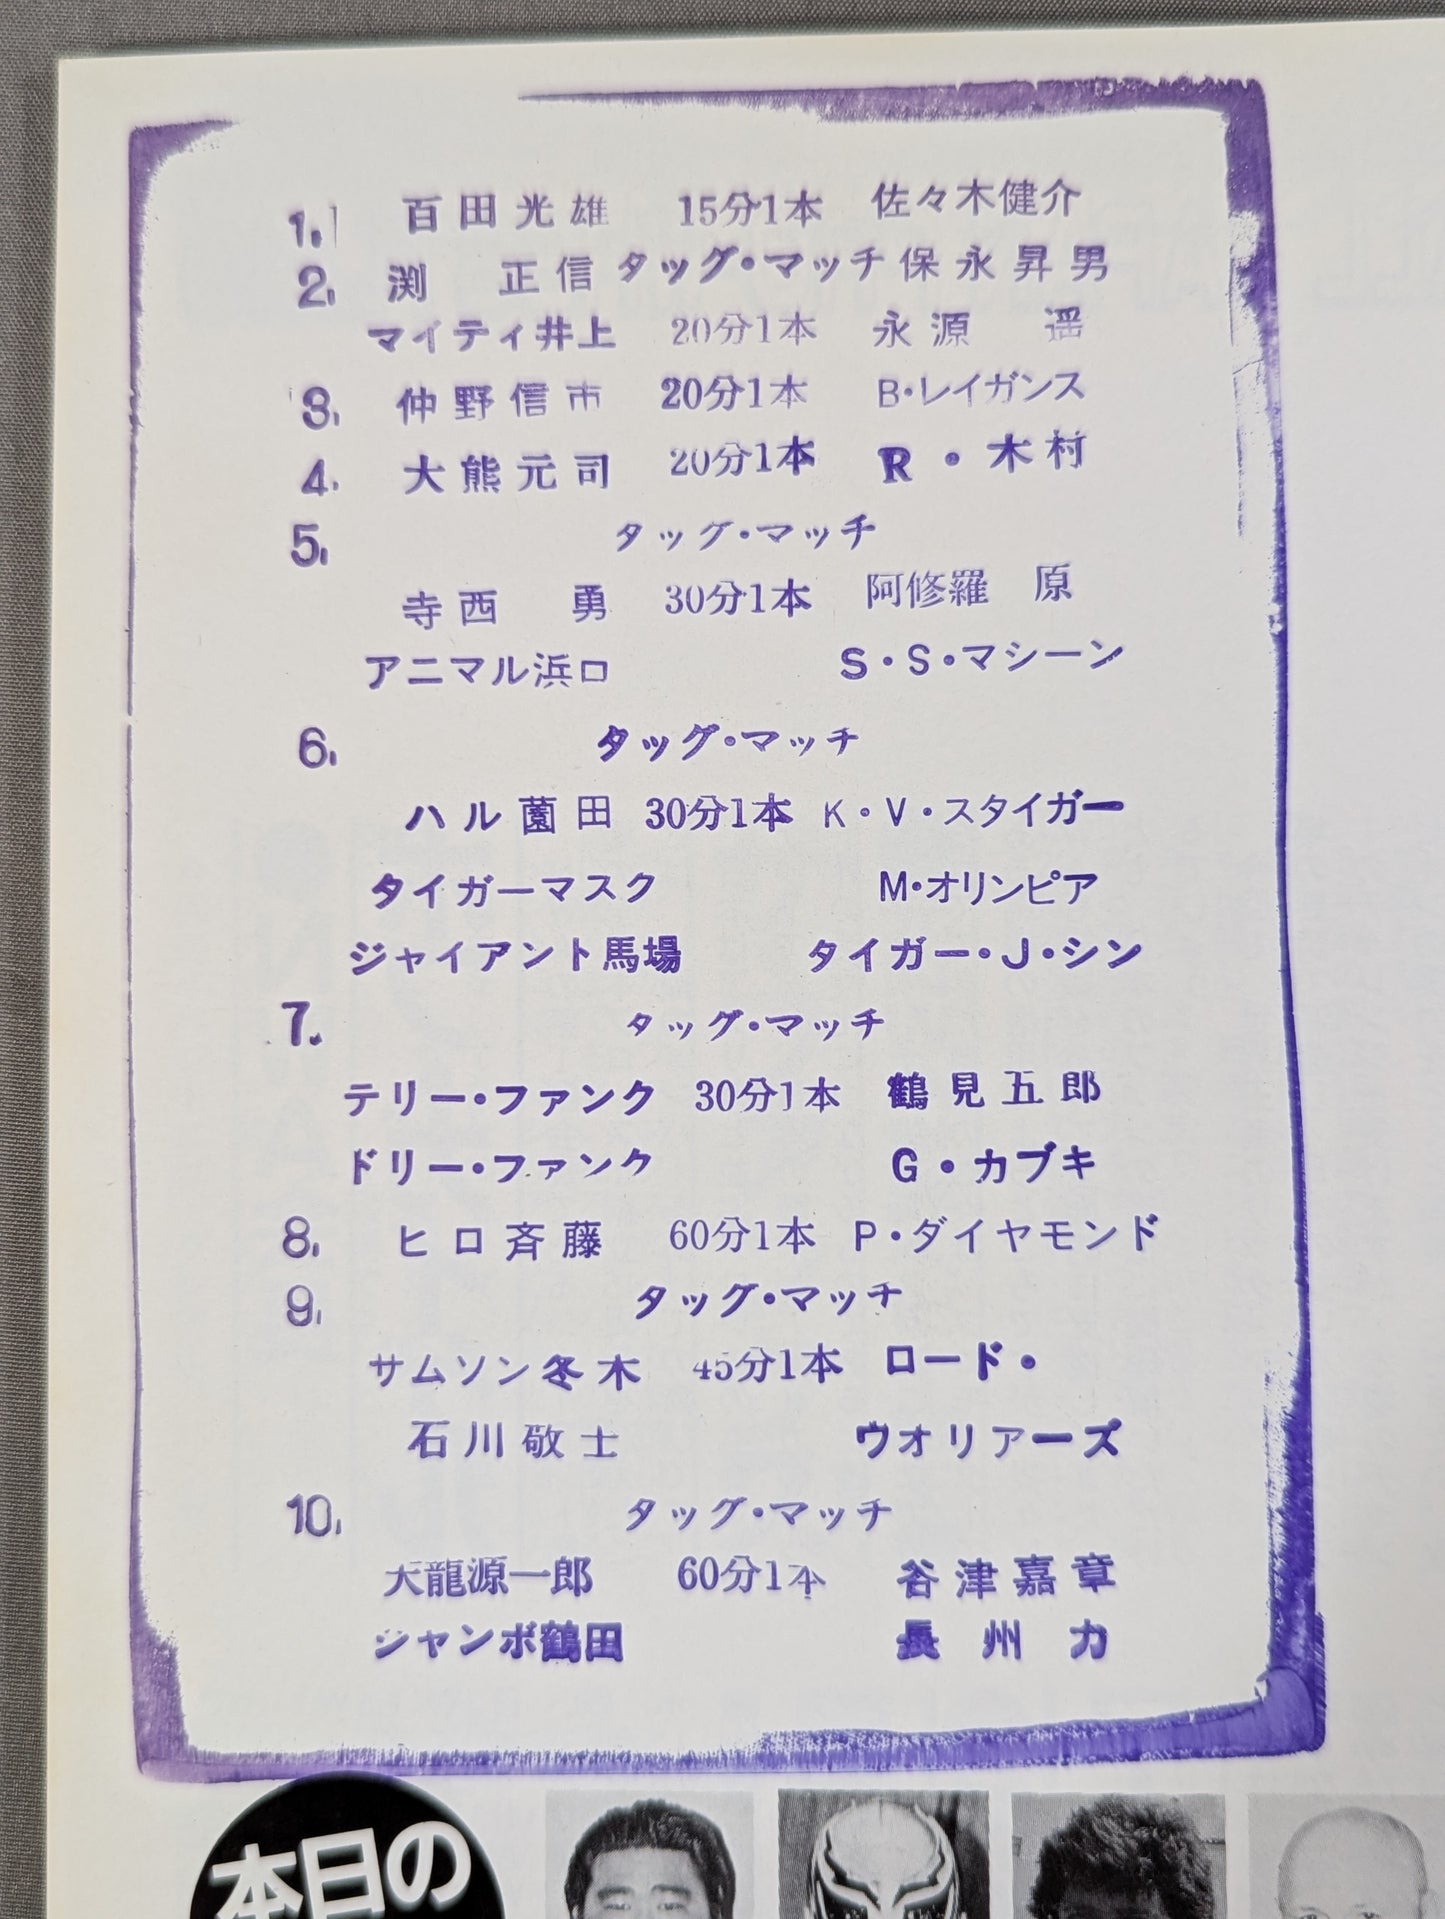 1. 百田光雄 15分1本 佐々木健介
2. 渕 正信 タッグ・マッチ 保永昇男
マイティ井上 20分1本 永源 遥
3. 仲野信市 20分1本 B・レイガンス
4. 大熊元司 20分1本 R・木村
5. タッグ・マッチ
寺西 勇 30分1本 阿修羅 原
アニマル浜口 S・S・マシーン
6. タッグ・マッチ
ハル薗田 30分1本 K・V・スタイガー
タイガーマスク M・オリンピア
ジャイアント馬場 タイガー・J・シン
7. タッグ・マッチ
テリー・ファンク 30分1本 鶴見五郎
ドリー・ファンク G・カブキ
8. ヒロ斉藤 60分1本 P・ダイヤモンド
9. タッグ・マッチ
サムソン冬木 45分1本 ロード・
石川敬士 ウオリアーズ
10. タッグ・マッチ
天龍源一郎 60分1本 谷津嘉章
ジャンボ鶴田 長州 力
本日の